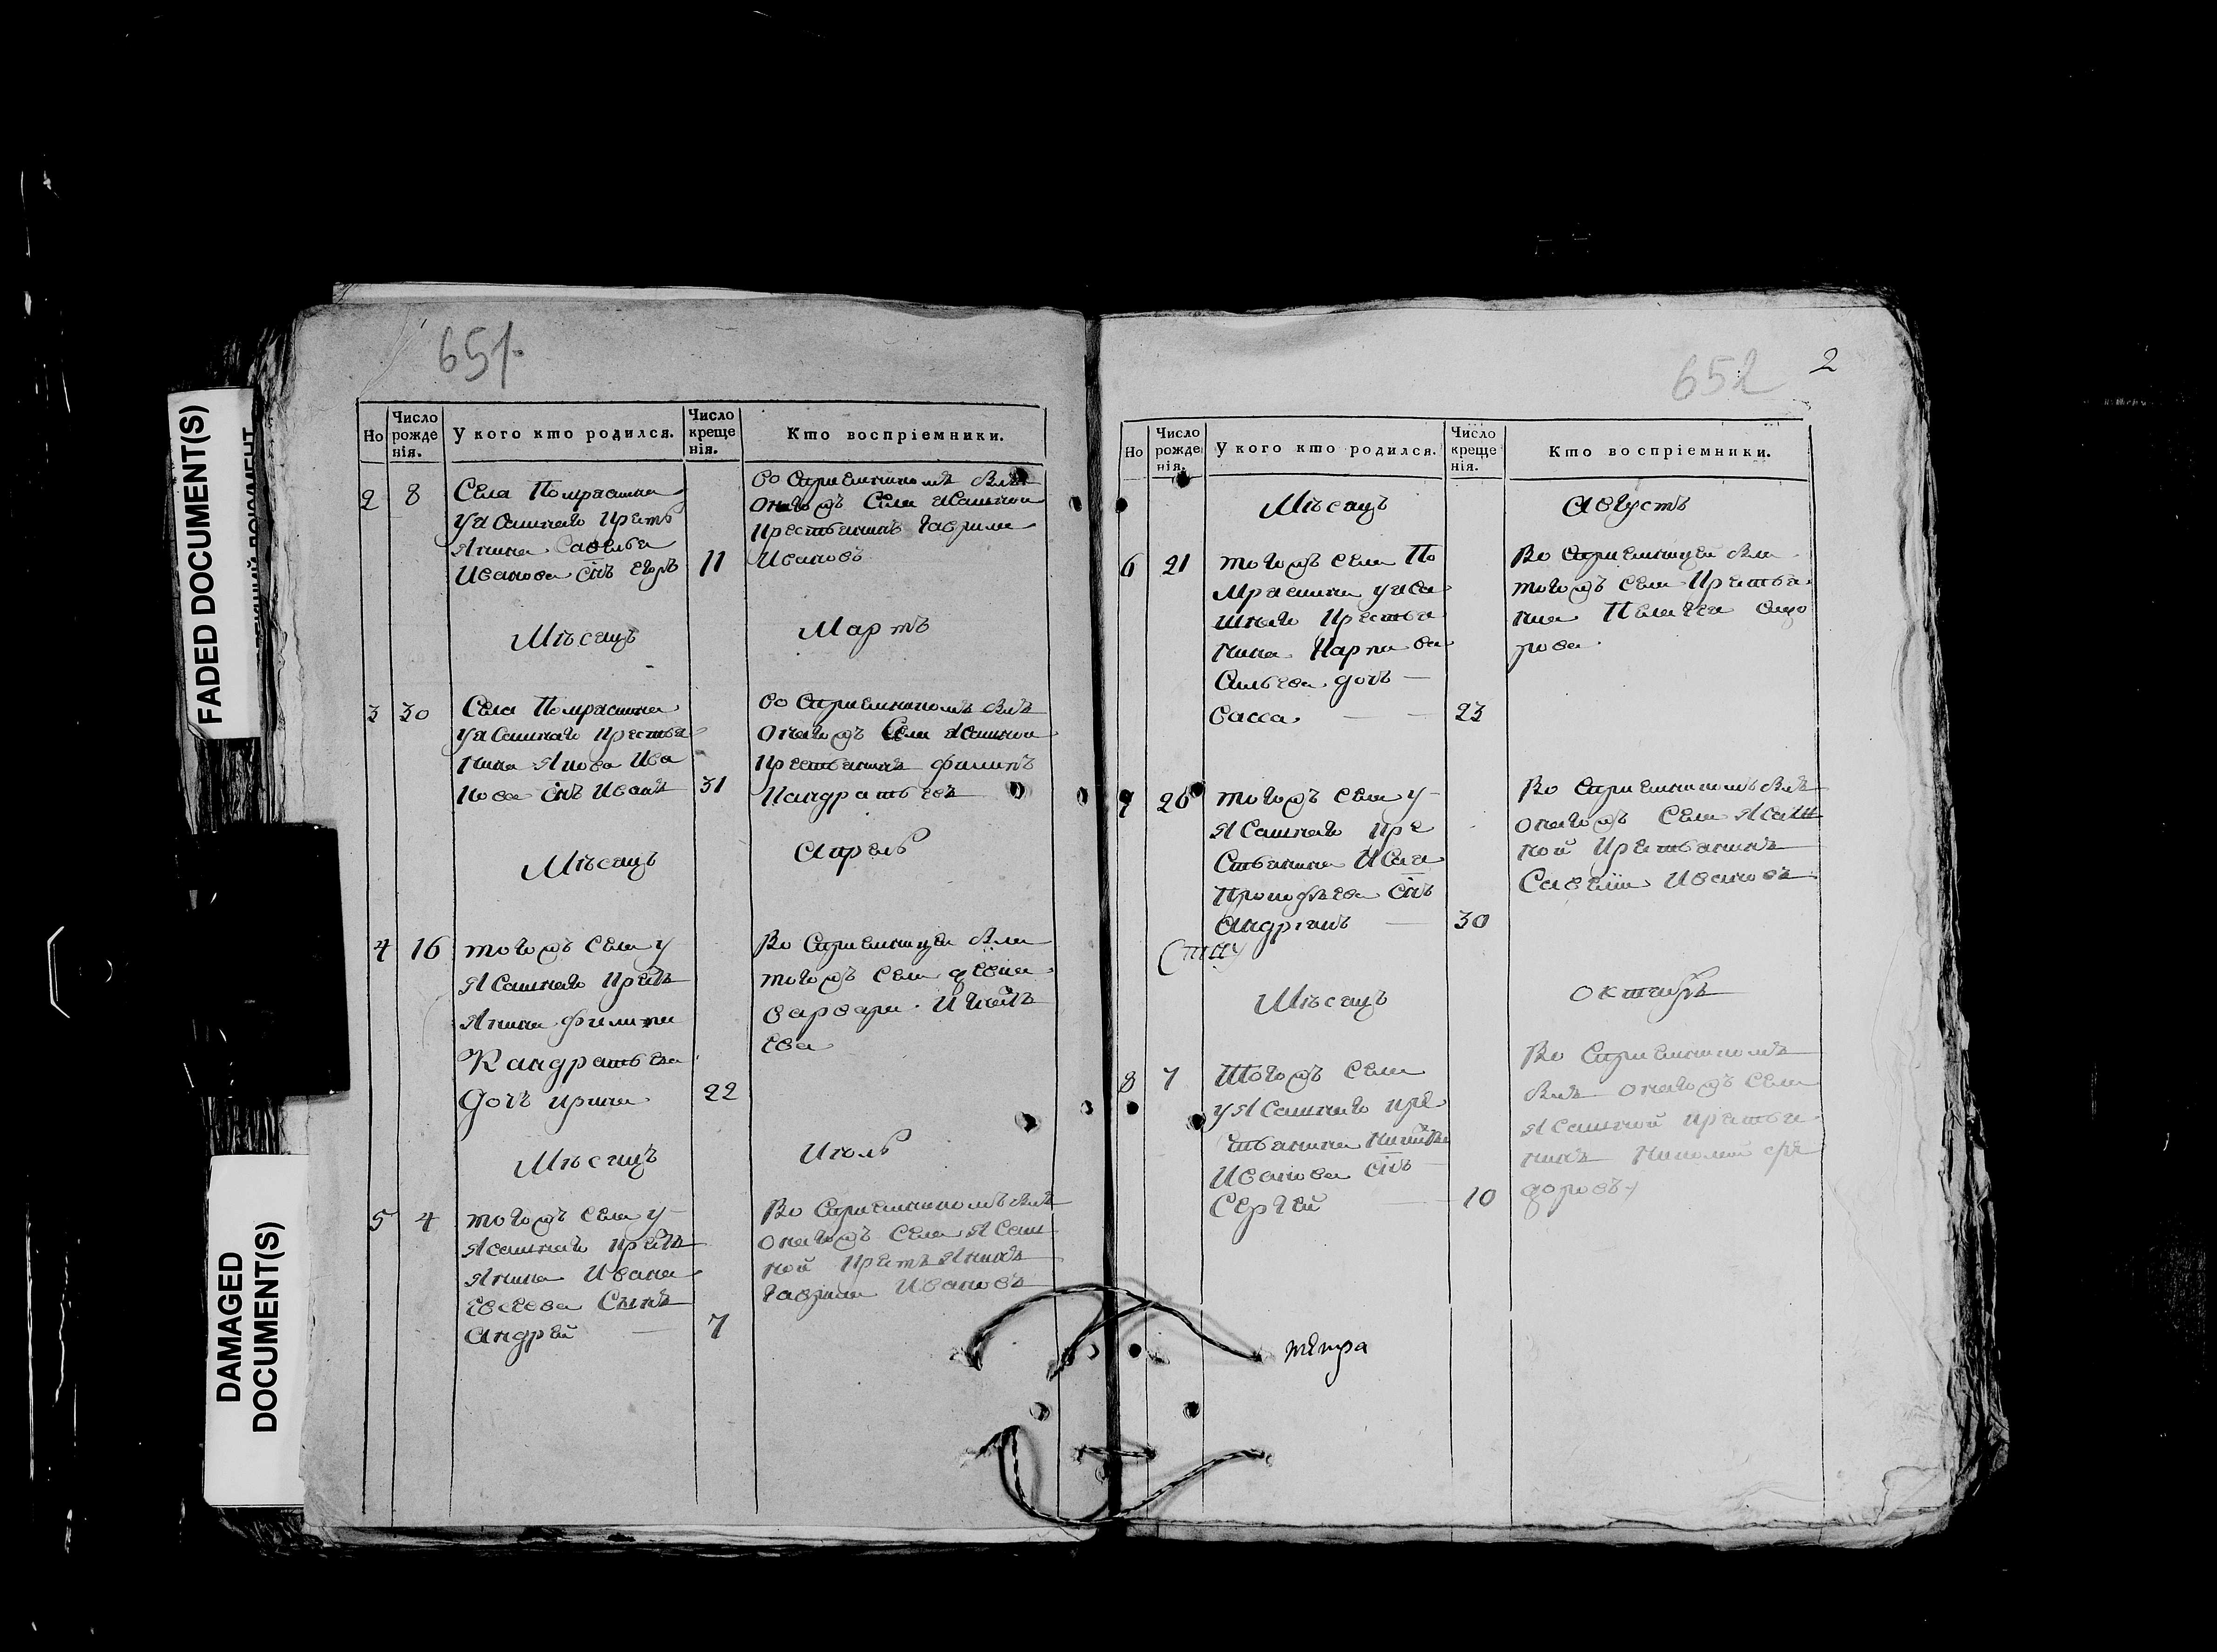 FADED DOCUMENT(S)
DAMAGED
DOCUMENT(S)
651.
Но
Число
рожде
нія.
У кого кто родился.
Число
креще
нія.
Кто воспріемники.
2 8 Села Покрасина
у Ясашнаго Крєсть
янина Савелья
Иванова снъ Егоръ 11
Восприемникомъ былъ
онагожъ Села Ясашной
Крестьянинъ Гаврила
Ивановъ
Мѣсецъ Мартъ
3 30 Села Покрасина
у Ясашнаго Крестья
нина Якова Ива
нова снъ Иванъ 31
Восприемникомъ былъ
онагожъ Села Ясашной
Крестьянинъ Филипъ
Кандратьевъ
Мѣсецъ Апрель
4 16 тогожъ Села у
Ясашнаго Крєсть
янина Филипа
Кандратьева
дочь Ирина 22
Восприемницей была
тогожъ Села девка
Варвара
ева
Мѣсецъ Июль
5 4 тогожъ Села у
Ясашнаго Крєсть
янина Ивана
Евсеева Сынъ
Андрей 7
Восприемникомъ былъ
онагожъ Села Ясаш
ной Крестьянинъ
Гаврила Ивановъ
652 2
Но
Число
рожде
нія.
У кого кто родился.
Число
креще
нія.
Кто воспріемники.
Мѣсецъ Августъ
6 21 тогожъ Села По
красина у Яса
шнаго Крестья
нина Карпа Ва
сильева дочь
Васса 23
Восприемницей была
тогожъ Села Крестья
нка Пелагея Сидо
рова
7 26 тогожъ Села у
Ясашнаго Кре
стьянина Исаа
Прокофьева снъ
Андрианъ 30
Восприемникомъ былъ
онагожъ Села Ясаш
ной Крестьянинъ
Савелий Ивановъ
Мѣсецъ Октябрь
8 7 Тогожъ Села
у Ясашнаго Кре
стьянина
Иванова снъ
Сергей 10
Восприемникомъ
былъ онагожъ Села
Ясашной Крестья
нинъ Николай Фе
доровъ